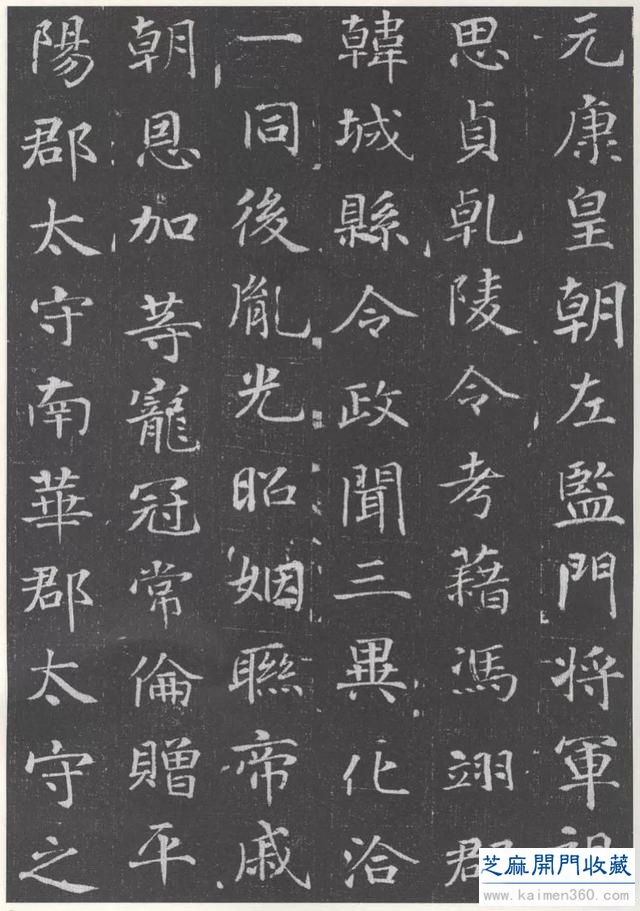 元康皇朝左監門将軍祖
思貞乹陵令考藉馮翊郡
韓城縣令政聞三異化洽
一同後胤光昭姻聯帝戚
朝恩加䒭寵冠常倫贈平
陽郡太守南華郡太守之
芝麻開門收藏
www.kaimen360.com